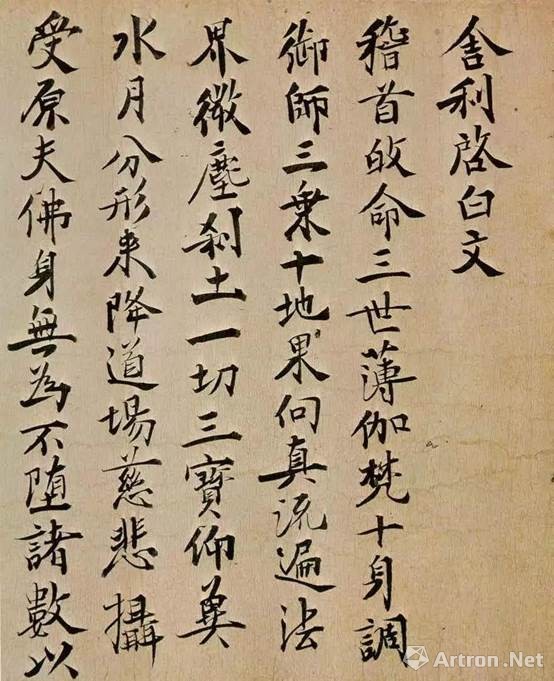 舍利啓白文
稽首皈命三世薄伽梵十身調
御師三乗十地果向真流遍法
界微塵刹土一切三寳仰冀
水月分形来降道場慈悲攝
受原夫佛身無為不堕諸數以
Artron.Net